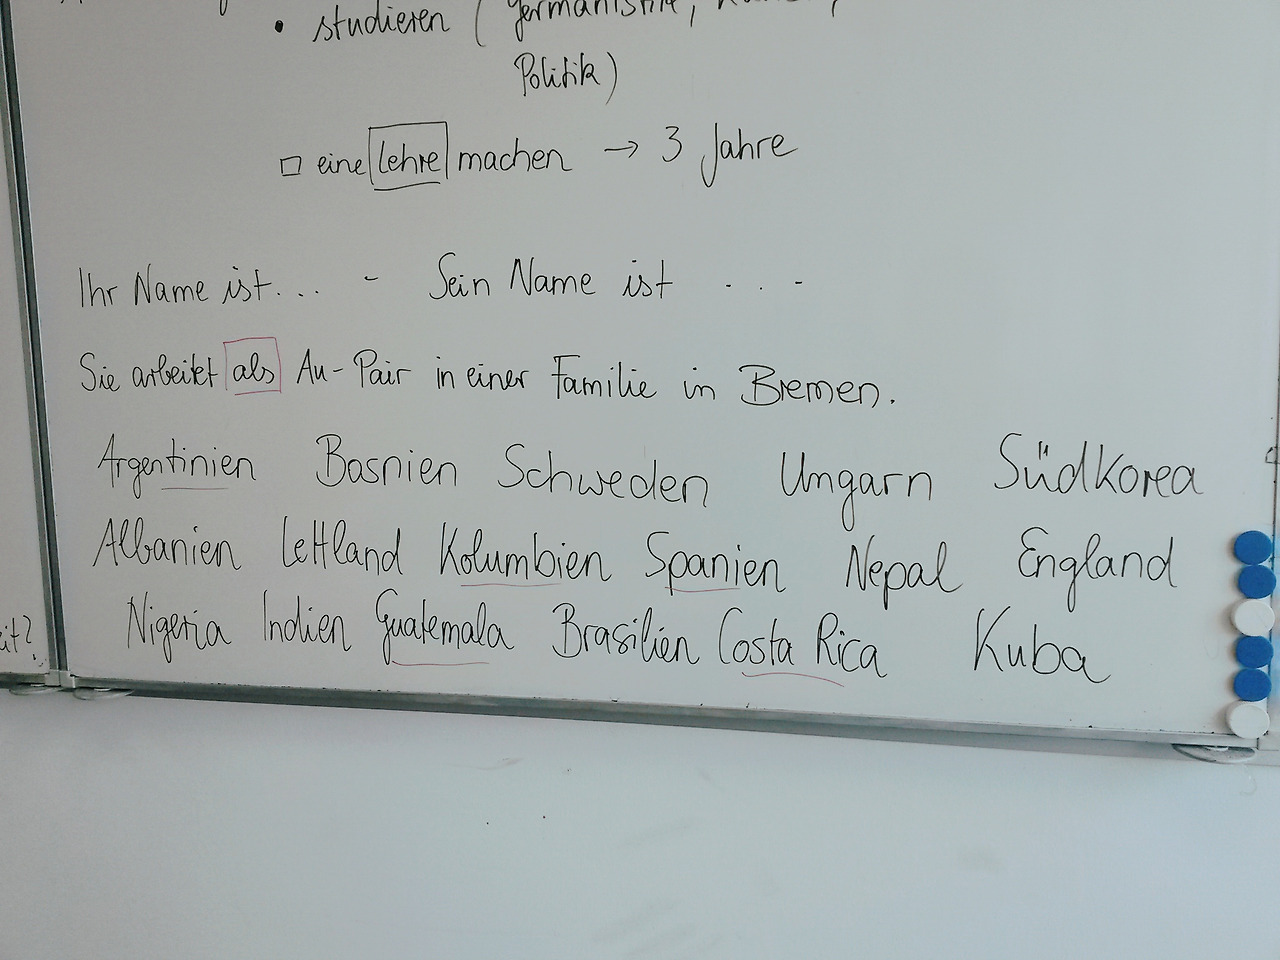 • studieren ( Germanistik,
Politik)
□ eine Lehre machen → 3 Jahre
Ihr Name ist... - Sein Name ist ....
Sie arbeitet als Au-Pair in einer Familie in Bremen.
Argentinien Bosnien Schweden Ungarn Südkorea
Albanien Lettland Kolumbien Spanien Nepal England
Nigeria Indien Guatemala Brasilien Costa Rica Kuba